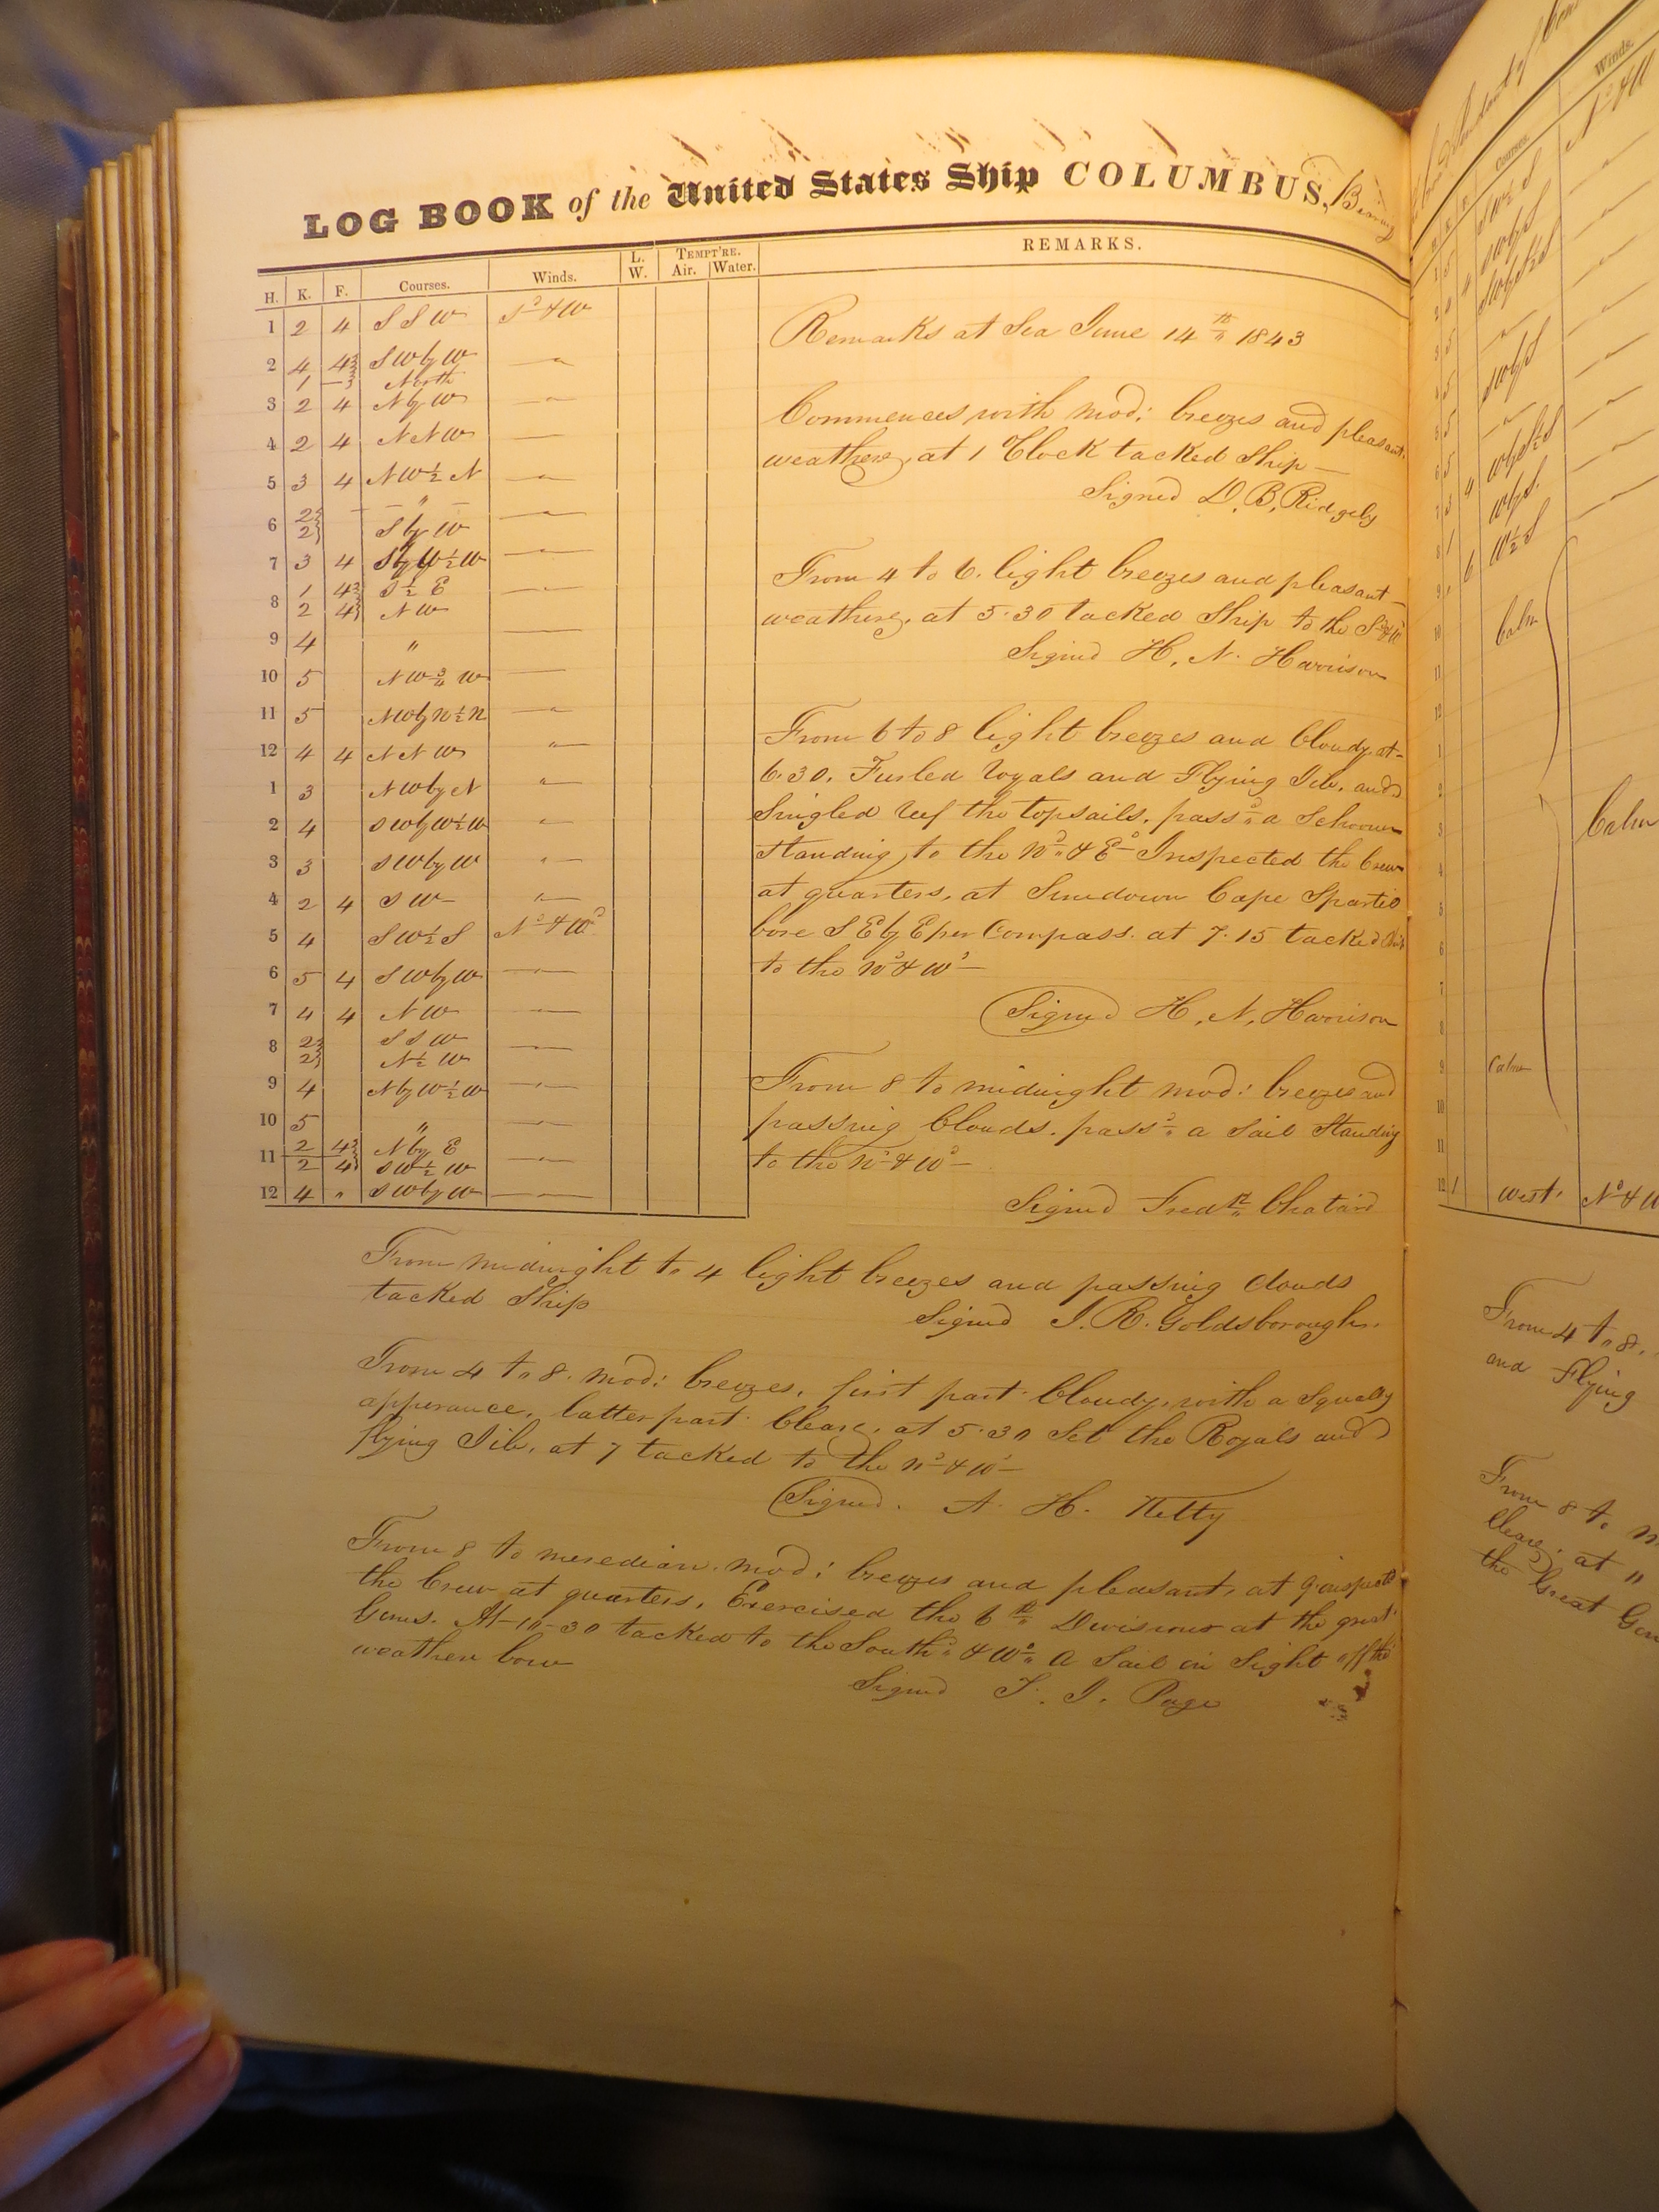 LOG BOOK of the United States Ship COLUMBUS,
H. K. F. Courses. Winds. L. W. TEMPT'RE. Air. Water. REMARKS.
1 2 4 S S W Sd & W
2 4 4 S W by W "
1 3 North
3 2 4 N by W "
4 2 4 N N W
5 3 4 N W ½ N "
6 2 "
2 S by W "
7 3 4 S by W ½ W "
8 1 4 S ½ E "
2 4 N W
9 4 "
10 5 N W ¾ W
11 5 N W by N ½ N "
12 4 4 N N W "
1 3 N W by N "
2 4 S W by W ½ W "
3 3 S W by W "
4 2 4 S W "
5 4 S W ½ S Nd & Wd
6 5 4 S W by W "
7 4 4 N W "
8 2 S S W "
2 N ½ W
9 4 N by W ½ W "
10 5 " "
11 2 4 N by E "
2 4 S W ½ W
12 4 " S W by W
Remarks at Sea June 14th 1843
Commences with mod: breezes and pleasant
weather, at 1 O'Clock tacked Ship
Signed D. B. Ridgely
From 4 to 6. light breezes and pleasant
weather, at 5.30 tacked Ship to the Sd & Wd
Signed H. N. Harrison
From 6 to 8 light breezes and Cloudy, at
6.30. Furled royals and Flying Jib, and
Singled reef the topsails, pass'd a Schooner
standing to the Nd & Ed Inspected the Crew
at quarters, at Sundown Cape Spartio
bore S E by E per Compass. at 7.15 tacked Ship
to the Nd & Wd
Signed H. N. Harrison
From 8 to midnight mod: breezes and
passing Clouds. pass'd a Sail Standing
to the Nd & Wd
Signed Fredk Chatard
From midnight to 4 light breezes and passing Clouds
tacked Ship
Signed J. R. Goldsborough.
From 4 to 8. mod: breezes, first part Cloudy, with a Squally
apperance, latter part Clear, at 5.30 Set the Royals and
flying Jib, at 7 tacked to the Nd & Wd
Signed. A. H. Kelty
From 8 to meredian. mod: breezes and pleasant, at 9 inspected
the Crew at quarters, Exercised the 6th Divisions at the great
Guns. At 10-30 tacked to the South'd & Wd. A Sail in Sight off the
weather bow
Signed T. J. Page
Winds.
Courses.
Calm
Calm
Calm
12 1 West Nd & W
From 4 to 8.
and Flying
From 8 to
Clear, at 11
the Great Gun